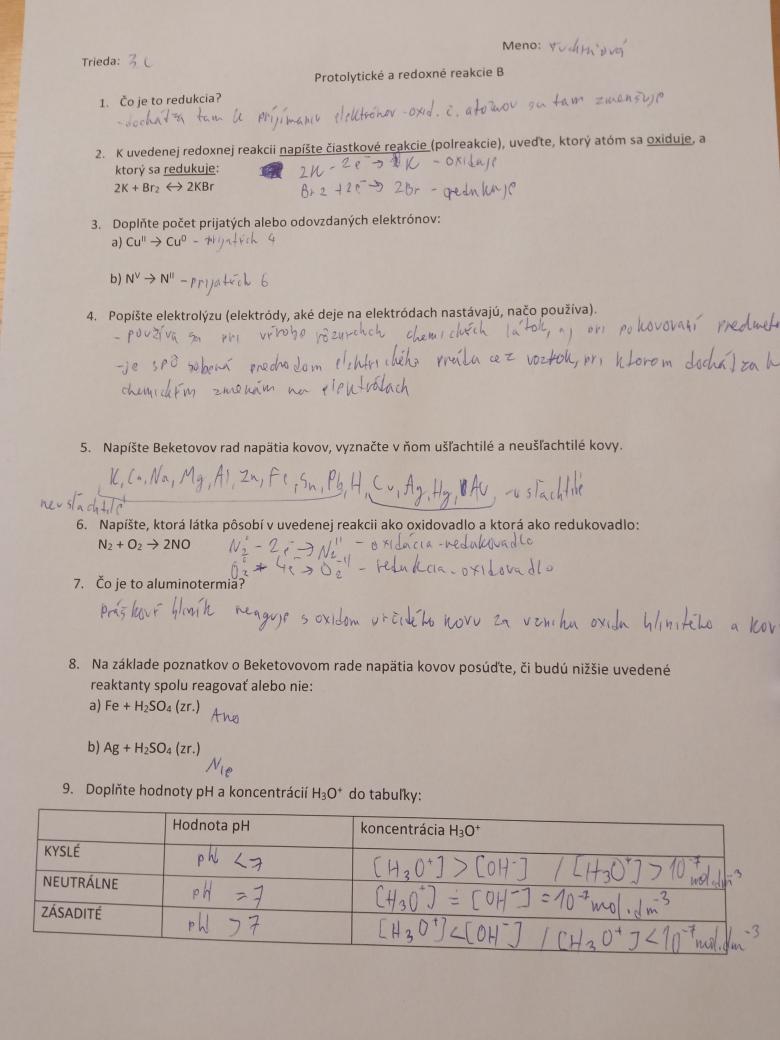 Meno:
Trieda: 3 C
Protolytické a redoxné reakcie B
1. Čo je to redukcia?
- dochádza tam k prijímaniu elektrónov - oxid. č. atómov sa tam zmenšuje
2. K uvedenej redoxnej reakcii napíšte čiastkové reakcie (polreakcie), uveďte, ktorý atóm sa oxiduje, a
ktorý sa redukuje:
2K - 2e⁻ → K - oxiduje
2K + Br₂ ↔ 2KBr
Br2 + 2e⁻ → 2Br - redukuje
3. Doplňte počet prijatých alebo odovzdaných elektrónov:
a) Cuᴵᴵ → Cu⁰ - prijatých 4
b) Nⱽ → Nᴵᴵ - prijatých 6
4. Popíšte elektrolýzu (elektródy, aké deje na elektródach nastávajú, načo používa).
- používa sa pri výrobe rôzných chemických látok, aj pri pokovovaní predmeto
- je spôsobená prechodom elektrického prúdu cez roztok, pri ktorom dochádza k
chemickým zmenám na elektródach
5. Napíšte Beketovov rad napätia kovov, vyznačte v ňom ušľachtilé a neušľachtilé kovy.
K, Ca, Na, Mg, Al, Zn, Fe, Sn, Pb, H, Cu, Ag, Hg, Au, - ušľachtilé
neušľachtilé
6. Napíšte, ktorá látka pôsobí v uvedenej reakcii ako oxidovadlo a ktorá ako redukovadlo:
N₂ + O₂ → 2NO
N₂⁰ - 2e⁻ → N₂ᴵᴵ - oxidácia - redukovadlo
O₂⁰ + 4e⁻ → O₂⁻ᴵᴵ - redukcia - oxidovadlo
7. Čo je to aluminotermia?
práškový hliník reaguje s oxidom určitého kovu za vzniku oxidu hlinitého a kov
8. Na základe poznatkov o Beketovovom rade napätia kovov posúďte, či budú nižšie uvedené
reaktanty spolu reagovať alebo nie:
a) Fe + H₂SO₄ (zr.) Ano
b) Ag + H₂SO₄ (zr.)
Nie
9. Doplňte hodnoty pH a koncentrácií H₃O⁺ do tabuľky:
Hodnota pH koncentrácia H₃O⁺
KYSLÉ pH < 7 [H₃O⁺] > [OH⁻] / [H₃O⁺] > 10⁻⁷ mol.dm⁻³
NEUTRÁLNE pH = 7 [H₃O⁺] = [OH⁻] = 10⁻⁷ mol.dm⁻³
ZÁSADITÉ pH > 7 [H₃O⁺] < [OH⁻] / [H₃O⁺] < 10⁻⁷ mol.dm⁻³